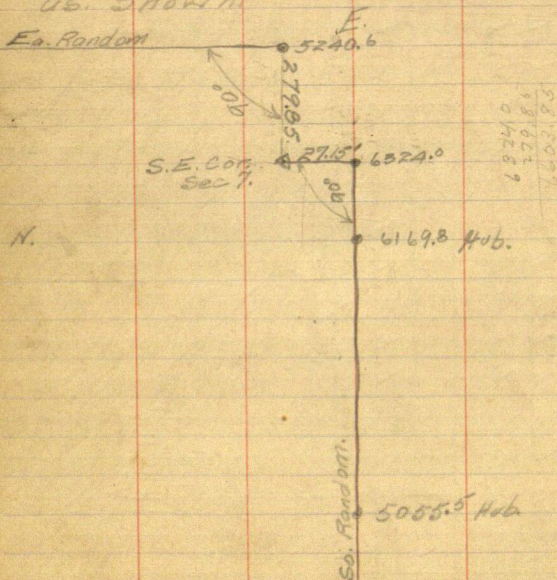 as. Shown.
E.
Ea. Random
5240.6
90°
279.85
S.E. Cor.
Sec 7.
27.15'
6324.0
90°
N.
6169.8 Hub.
So. Random.
5055.5 Hub.